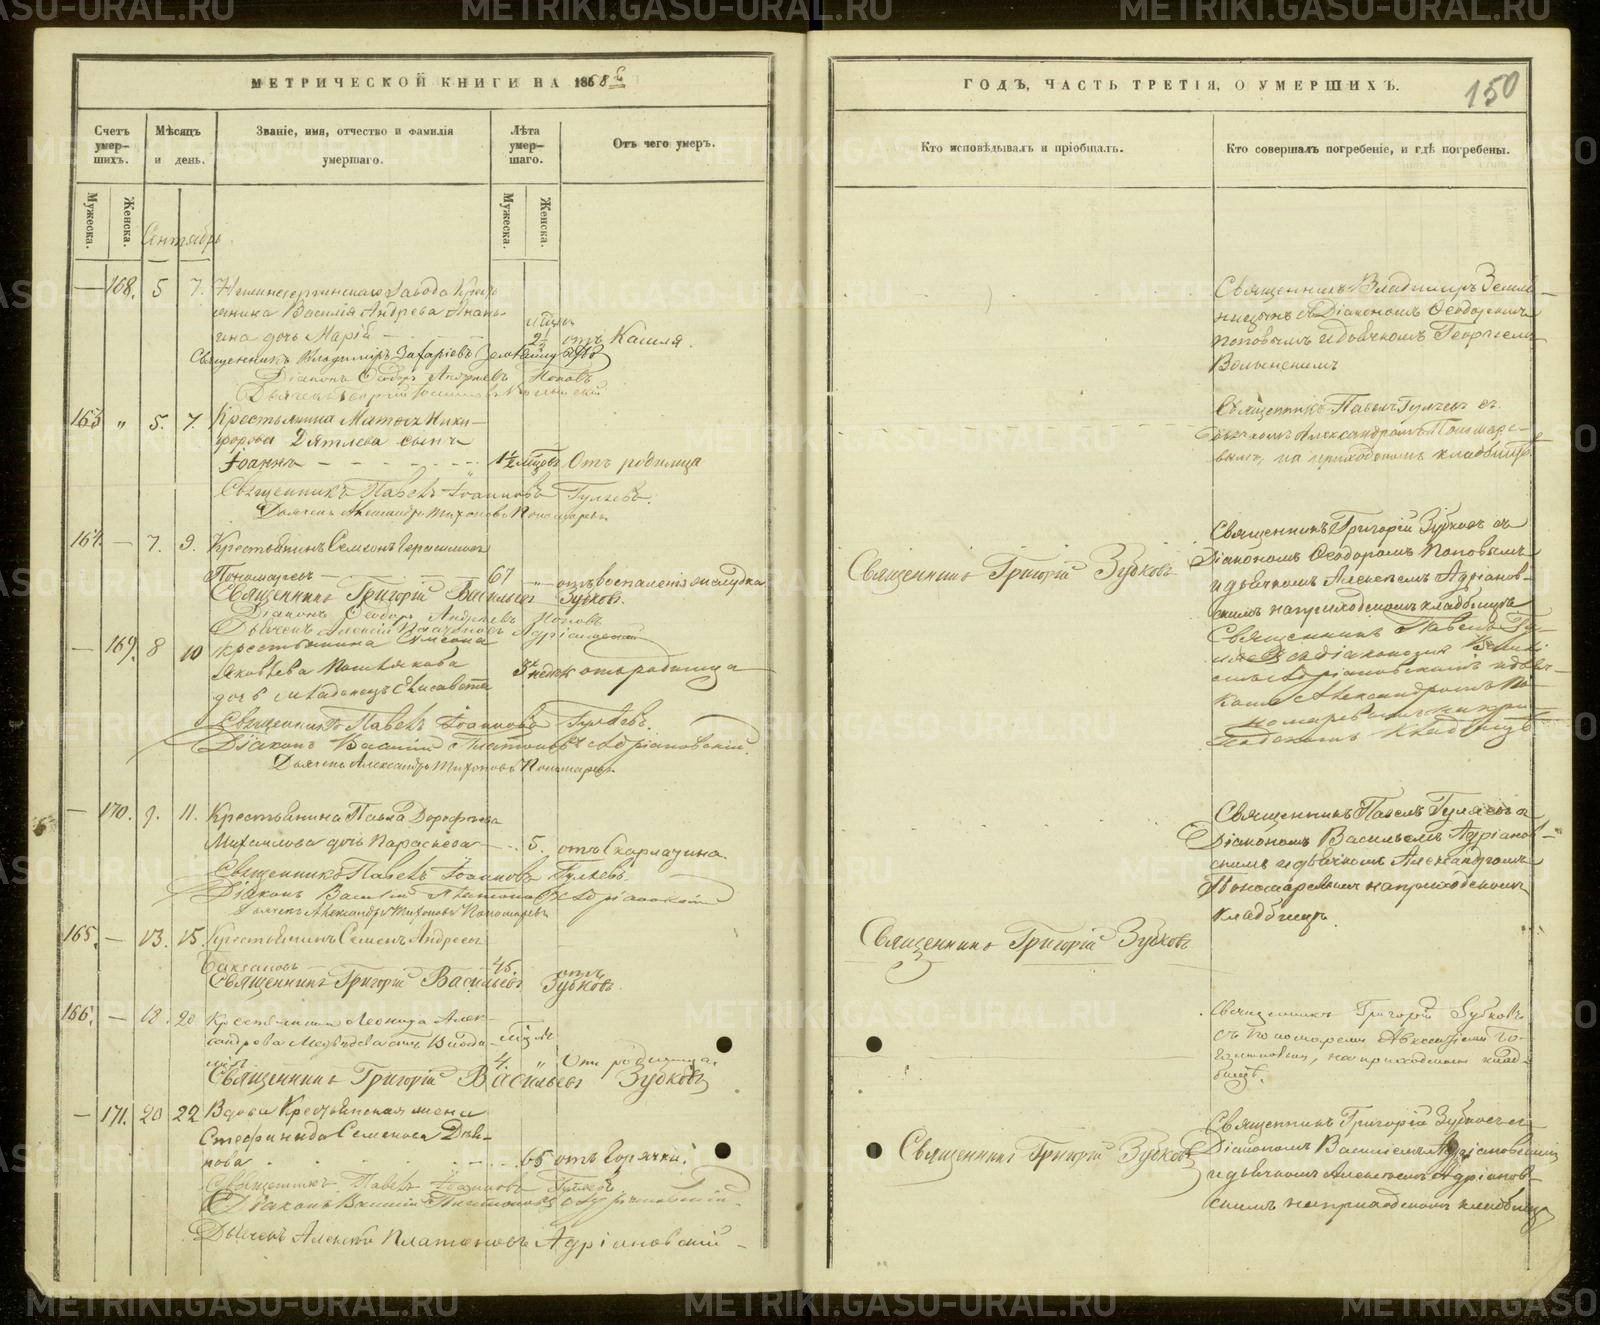 МЕТРИЧЕСКОЙ КНИГИ НА 1868 г.
Счетъ умер-шихъ.
Мѣсяцъ и день.
Званіе, имя, отчество и фамилія умершаго.
Лѣта умер-шаго.
Отъ чего умеръ.
Мужеска.
Женска.
Мужеска.
Женска.
Сентябрь
— 168. 5 7. Нижнесергинскаго Завода Кресть
янина Василія Андреева Анань
ина дочь Марія
2½ отъ Кашля.
Священникъ Владимиръ Захаріевъ
Діаконъ Ѳеодоръ Андреевъ Поповъ
Дьячекъ Георгій
163 „ 5. 7. Крестьянина Матѳея Ники-
форова Дятлева сынъ
Іоаннъ 1½ мѣсяцъ Отъ родимца
Священникъ Павелъ Іоанновъ Гуляевъ.
Дьячекъ Александръ Тихоновъ Пономаревъ
164. — 7. 9. Крестьянинъ Семенъ Герасимовъ
Пономаревъ — 67 — отъ воспаленія желудка
Священникъ Григорій Васильевъ Зубковъ.
Діаконъ Ѳеодоръ Андреевъ Поповъ
Дьячекъ Алексій Платоновъ Адріановскій
— 169. 8 10 Крестьянина Симеона
Яковлева дочь младенецъ Елисавета
3х недѣл отъ родимца
Священникъ Павелъ Іоанновъ Гуляевъ.
Діаконъ Василій Платоновъ Адріановскій.
Дьячекъ Александръ Тихоновъ Пономаревъ
— 170. 9. 11. Крестьянина Павла Дороѳеева
Михаилова дочь Параскева — 5. отъ скарлатина.
Священникъ Павелъ Іоанновъ Гуляевъ.
Діаконъ Василій Платоновъ Адріановскій
Дьячекъ Александръ Тихоновъ Пономаревъ
165. — 13. 15. Крестьянинъ Семенъ Андреевъ
45. отъ
Священникъ Григорій Васильевъ Зубковъ.
166. — 18. 20 Крестьянина Леонида Алек-
сандрова Медвѣдева сынъ
4. „ Отъ родимца.
Священникъ Григорій Васильевъ Зубковъ
— 171. 20 22 Вдова Крестьянская жена
Стефанида Семенова
65 отъ горячки.
Священникъ Павелъ Іоанновъ Гуляевъ
Діаконъ Василій Платоновъ Адріановскій.
Дьячекъ Алексій Платоновъ Адріановскій
ГОДЪ, ЧАСТЬ ТРЕТІЯ, О УМЕРШИХЪ.
150
Кто исповѣдывалъ и пріобщалъ.
Кто совершалъ погребеніе, и гдѣ погребены.
Священникъ Владимиръ Земля-
ницынъ съ Діакономъ Ѳеодоромъ
Поповымъ и дьячкомъ Георгіемъ
Волынскимъ
Священникъ Павелъ Гуляевъ съ
дьячкомъ Александромъ Пономаре-
вымъ, на приходскомъ кладбищѣ.
Священникъ Григорій Зубковъ
Священникъ Григорій Зубковъ съ
Діакономъ Ѳеодоромъ Поповымъ
и дьячкомъ Алексѣемъ Адріанов-
скимъ на приходскомъ кладбищѣ
Священникъ Павелъ Гу-
ляевъ съ діакономъ Василі
емъ Адріановскимъ и дьяч-
комъ Александромъ По-
номаревымъ на при-
ходскомъ кладбищѣ
Священникъ Павелъ Гуляевъ съ
Діакономъ Васильемъ Адріанов-
скимъ и дьячкомъ Александромъ
Пономаревымъ на приходскомъ
кладбищѣ.
Священникъ Григорій Зубковъ
Священникъ Григорій Зубковъ
съ пономаремъ
на приходскомъ клад-
бищѣ.
Священникъ Григорій Зубковъ
Священникъ Григорій Зубковъ съ
Діакономъ Василіемъ Адріановскимъ
и дьячкомъ Алексѣемъ Адріанов-
скимъ на приходскомъ кладбищѣ
METRIKI.GASO-URAL.RU